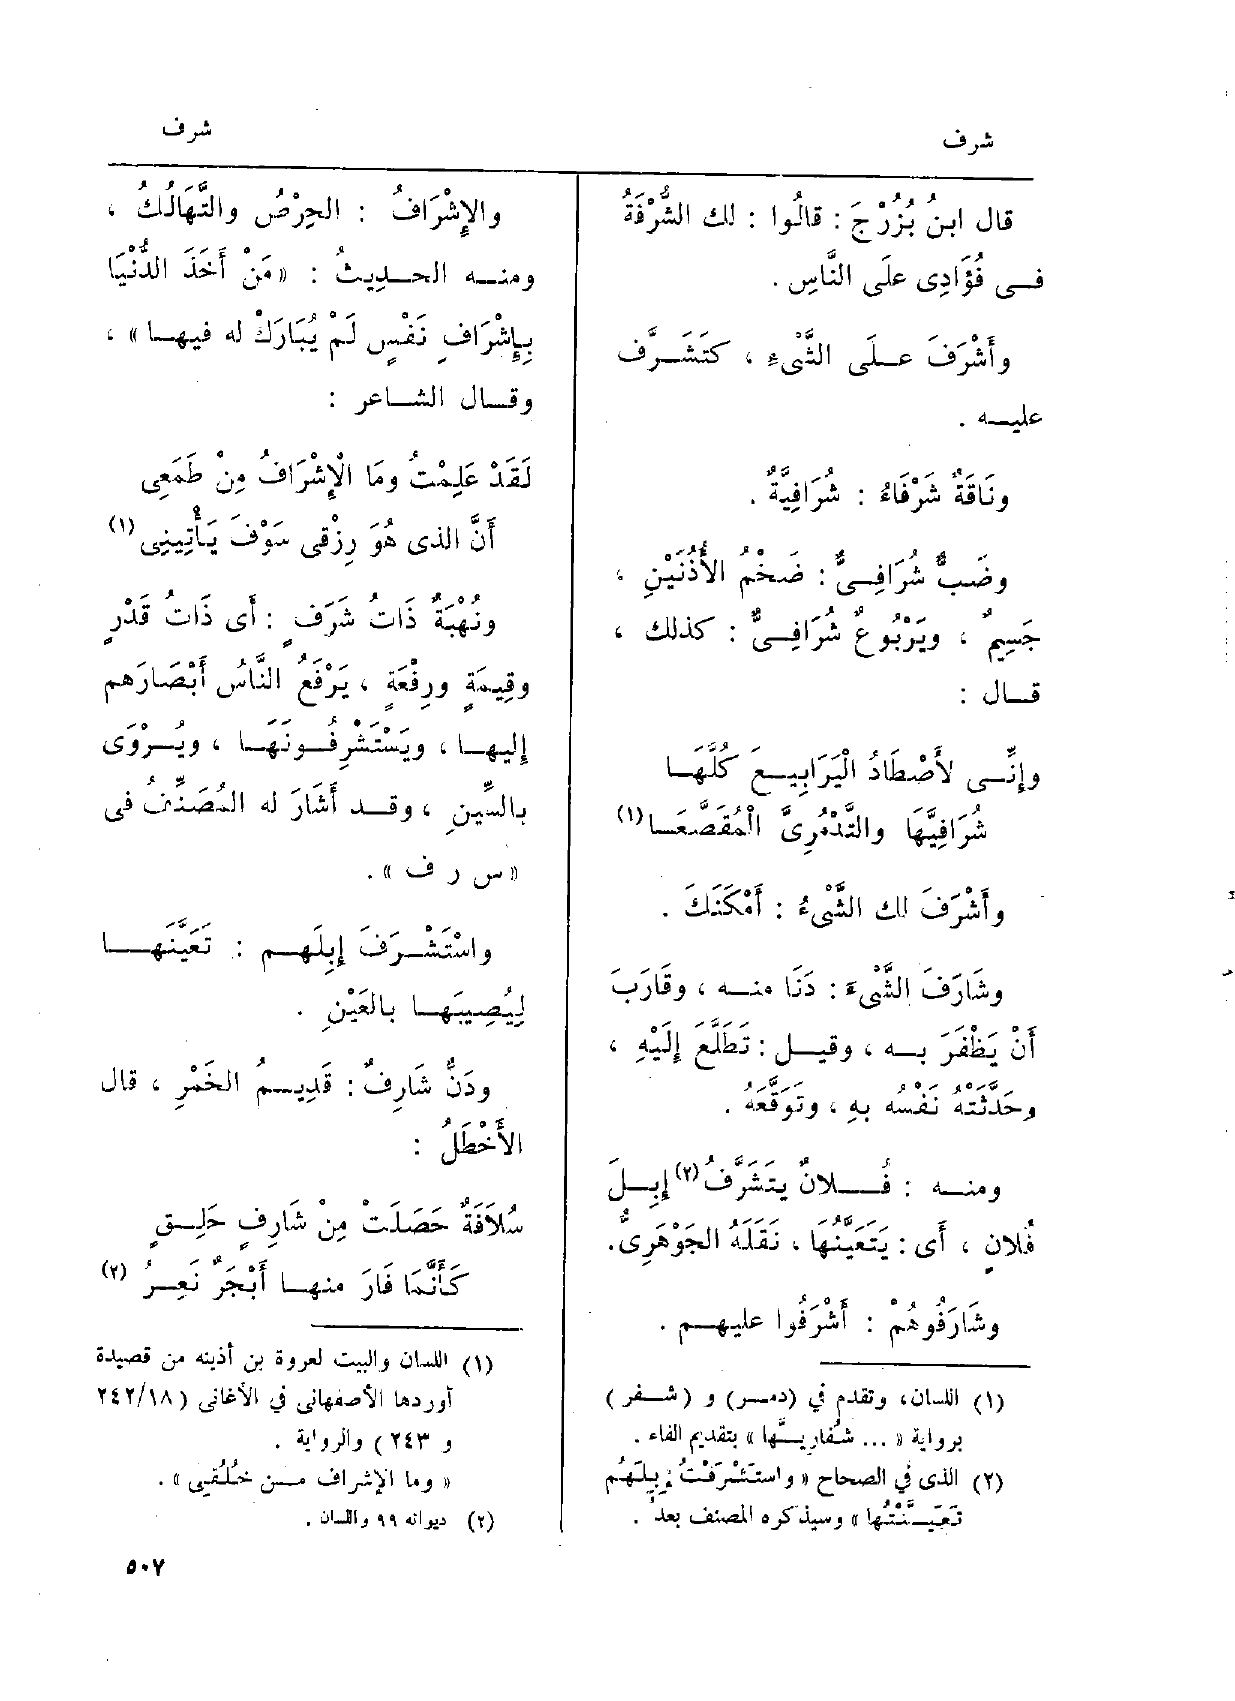 شرف
شرف
قال ابنُ بُزُرْجَ : قالُوا : لك الشُّرْفَةُ
فى فُؤَادِى علَى النَّاسِ .
وأَشْرَفَ علَى الشَّىْءِ ، كتَشَرَّف
عليه .
ونَاقَةٌ شَرْفَاءُ : شُرَافِيَّةٌ .
وضَبٌّ شُرَافِىٌّ : ضَخْمُ الأُذُنَيْنِ ،
جَسِيمٌ ، ويَرْبُوعٌ شُرَافِىٌّ : كذلك ،
قال :
وإِنِّى لأَصْطَادُ الْيَرَابِيعَ كُلَّهَا
شُرَافِيَّهَا والتَّدْمُرِىَّ الْمُقَصَّعَا(١)
وأَشْرَفَ لك الشَّىْءُ : أَمْكَنَكَ .
وشَارَفَ الشَّىْءَ : دَنَا منه ، وقَارَبَ
أَنْ يَظْفَرَ به ، وقيل : تَطَلَّعَ إِلَيْهِ ،
وحَدَّثَتْهُ نَفْسُه بِهِ ، وتَوَقَّعَهُ .
ومنه : فُلانٌ يتَشَرَّفُ(٢) إِبِلَ
فُلانٍ ، أَى : يَتَعَيَّنُهَا ، نَقَلَهُ الجَوْهَرِىُّ.
وشَارَفُوهُمْ : أَشْرَفُوا عليهم .
(١) اللسان، وتقدم في (دمر) و (شفر)
برواية « ... شُفاريَّها » بتقديم الفاء .
(٢) الذى في الصحاح « واستَشْرَفْتُ إِبِلَهُم
تَعَيَّنْتُها » وسيذكره المصنف بعدُ .
والإِشْرَافُ : الحِرْصُ والتَّهَالُكُ ،
ومنه الحديثُ : « مَنْ أَخَذَ الدُّنْيَا
بِإِشْرَافِ نَفْسٍ لَمْ يُبَارَكْ له فيها » ،
وقال الشاعر :
لَقَدْ عَلِمْتُ ومَا الْإِشْرَافُ مِنْ طَمَعِى
أَنَّ الذى هُوَ رِزْقى سَوْفَ يَأْتِينِى(١)
ونُهْبَةٌ ذَاتُ شَرَفٍ : أَى ذَاتُ قَدْرٍ
وقِيمَةٍ ورِفْعَةٍ ، يَرْفَعُ النَّاسُ أَبْصَارَهم
إليها ، ويَسْتَشْرِفُونَهَا ، ويُرْوَى
بالسِّينِ ، وقد أَشَارَ له المُصَنِّفُ فى
« س ر ف » .
واسْتَشْرَفَ إِبِلَهم : تَعَيَّنَها
لِيُصِيبَهَا بالعَيْنِ .
ودَنٌّ شَارِفٌ : قَدِيمُ الخَمْرِ ، قال
الأَخْطَلُ :
سُلَافَةٌ حَصَلَتْ مِنْ شَارِفٍ حَلِقٍ
كَأَنَّمَا فَارَ منها أَبْجَرٌ نَعِرُ (٢)
(١) اللسان والبيت لعروة بن أذينه من قصيدة
أوردها الأصفهانى في الأغانى (١٨/٢٤٢
و ٢٤٣ ) والرواية .
« وما الإشراف من خُلُقِى » .
(٢) ديوانه ٩٩ واللسان .
٥٠٧